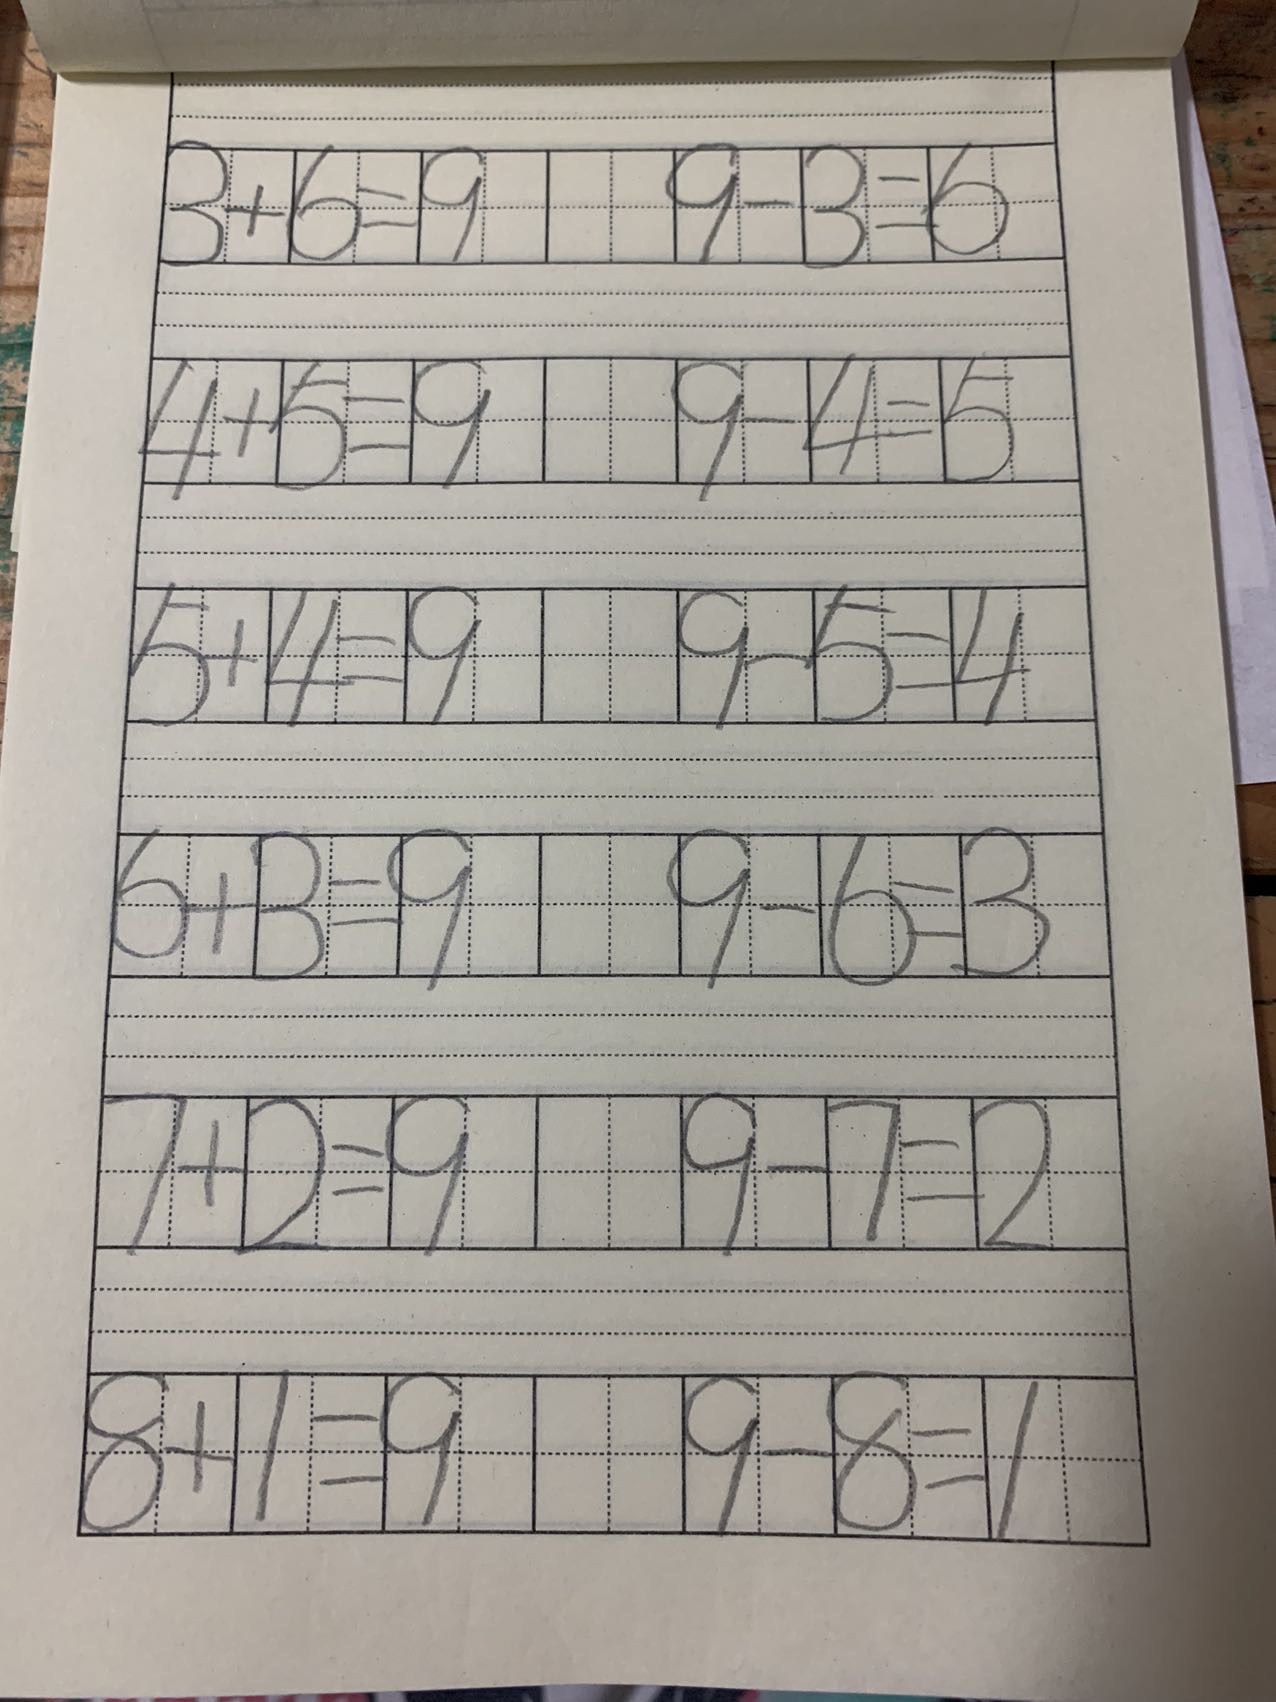 3+6=9 9-3=6
4+5=9 9-4=5
5+4=9 9-5=4
6+3=9 9-6=3
7+2=9 9-7=2
8+1=9 9-8=1